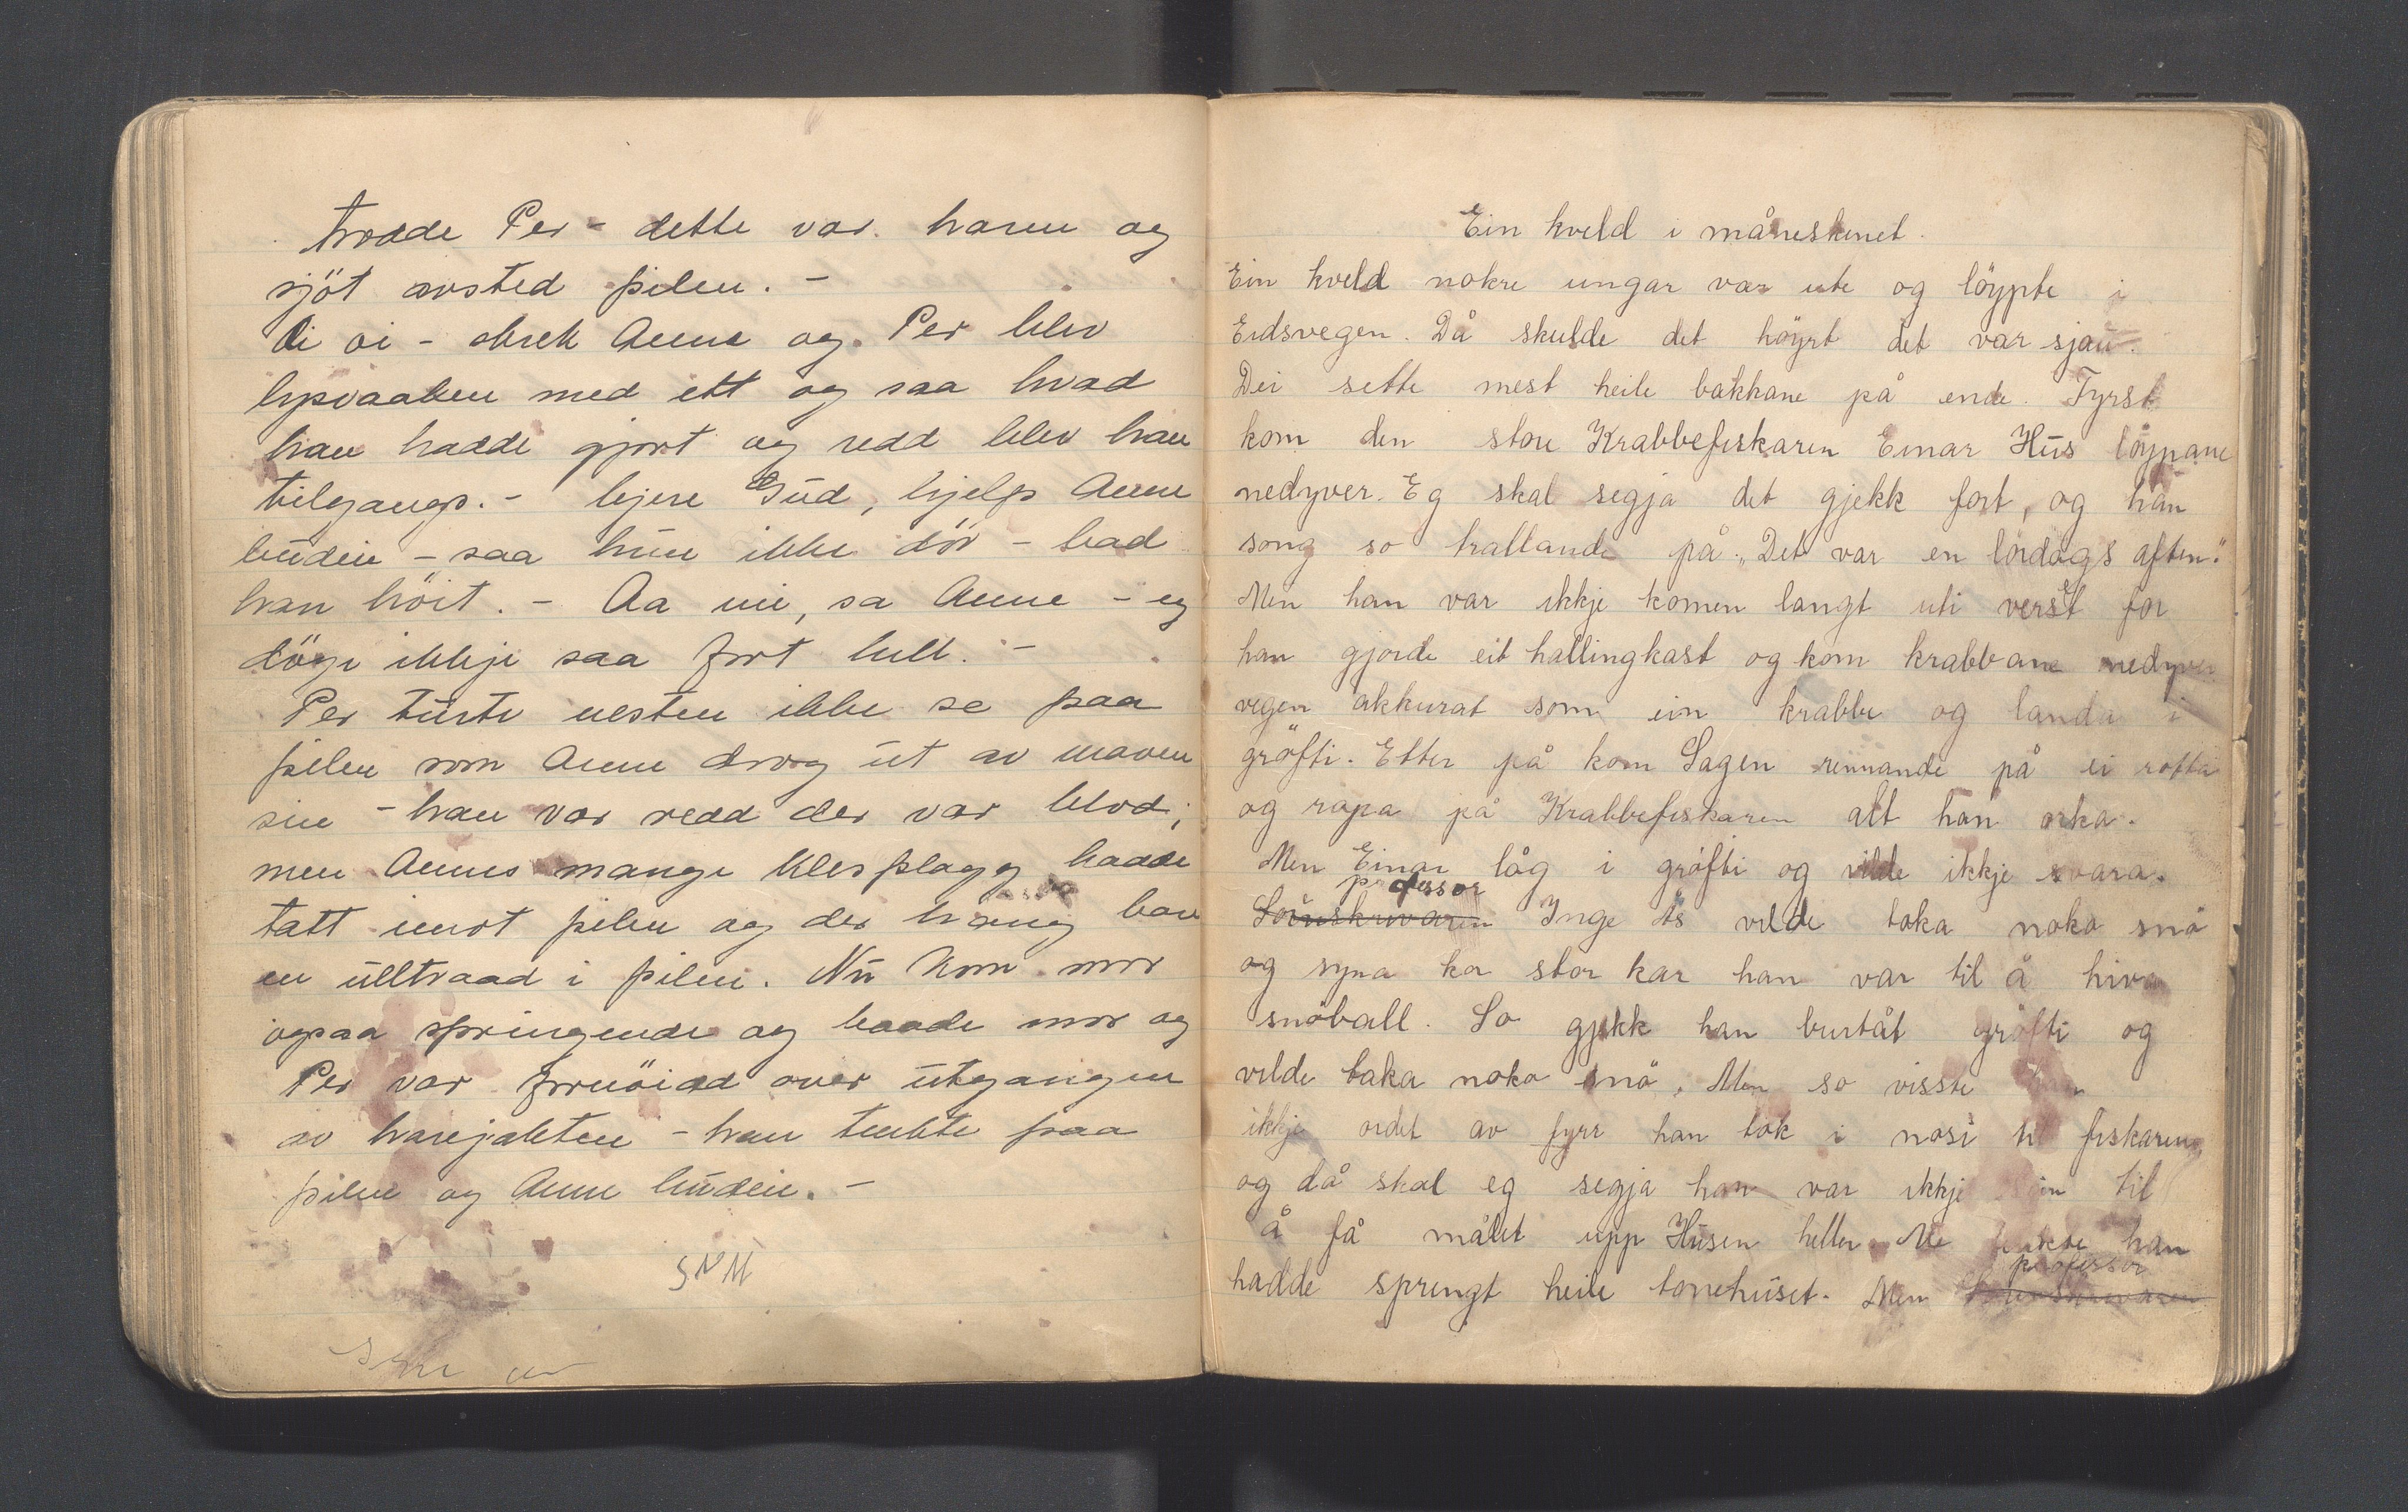 trodde Per - dette var haren og
sjöt avsted pilen. -
Oi oi - skrek Anne og Per blev
lysvaaken med ett og saa hvad
han hadde gjort og redd blev han
tilgangs. - kjere Gud, hjelp Anne
budeie - saa hun ikke dör - bad
han höit. - Aa nei, sa Anne - eg
döyr ikkje saa fort hell. -
Per turte nesten ikke se paa
pilen som Anne drog ut av maven
sin - han var redd der var blod;
men Annes mange klesplagg hadde
tatt imot pilen og der hang bare
en ulltraad i pilen. Nu kom mor
ogsaa springende og baade mor og
Per var fornöiad over utgangen
av harejakten - han tenkte paa
pilen og Anne budeie. -
SNM
Ein kveld i måneskinet.
Ein kveld nokre ungar var ute og löypte i
Eidsvegen. Då skulde det höyrt det var sjau.
Dei sette mest heile bakkane på ende. Fyrst
kom den store Krabbefiskaren Einar Hus löypane
nedyver. Eg skal segja det gjekk fort, og han
song so trallande på "Det var en lördags aften."
Men han var ikkje komen langt uti verset for
han gjorde eit hallingkast og kom krabbane nedyver
vegen akkurat som ein krabbe og landa i
gröfti. Etter på kom Sagen rennande på ei rotta
og ropa på Krabbefiskaren alt han orka.
Men Einar låg i gröfti og vilde ikkje svara.
professor
Inge Ås vilde taka noko snö
og syna kor stor kar han var til å hiva
snöball. So gjekk han burtåt gröfti og
vilde taka noko snö. Men so visste han
ikkje ordet av fyrr han tok i nosi til fiskaren,
og då skal eg segja han var ikkje sein til
å få målet upp Husen heller. Me tenkte han
professor
hadde sprengt heile tonehuset. Men